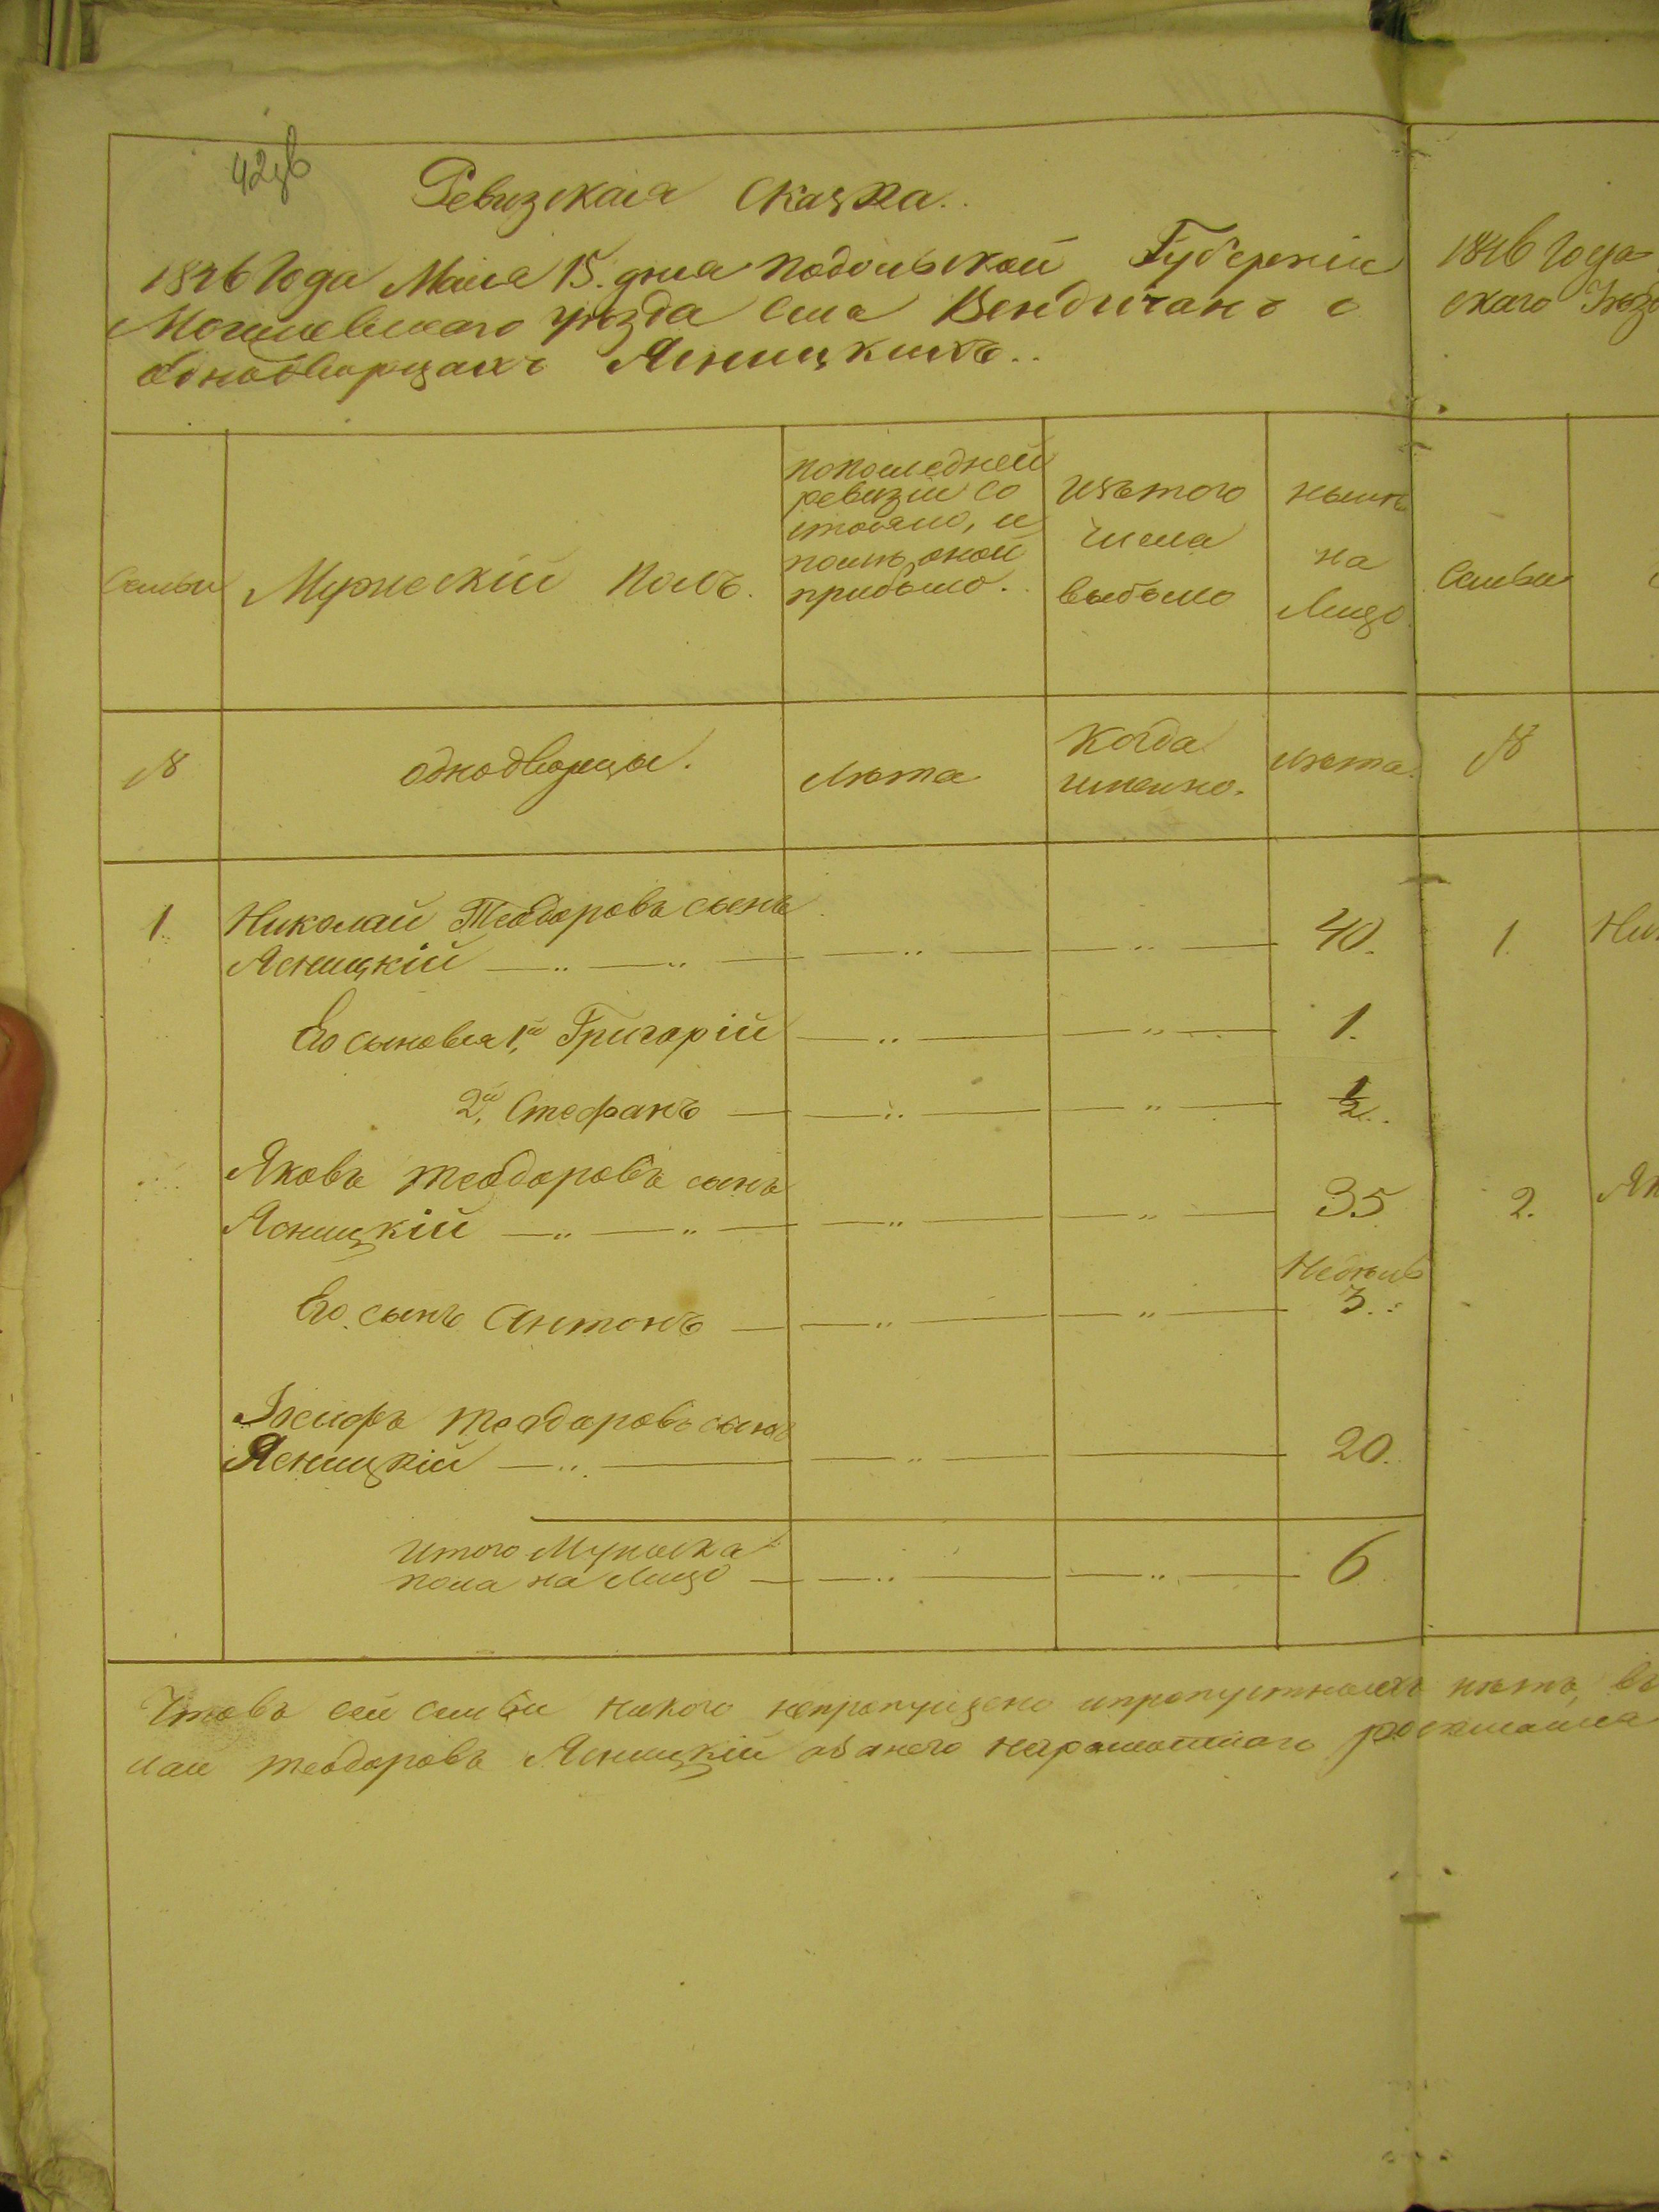 Ревизская Сказка..
1846 Года Маия 15. дня Подольской Губерніи
Могилевскаго уѣзда Села Вендичанъ о
однодворцахъ Ясницкихъ..
Семьи
Мужескій Полъ.
попоследней
ревизіи со
стояло, и
послѣ оной
прибыло.
Изътого
числа
выбыло
нынѣ
на
Лицо
№
однодворцы.
Лѣта
Когда
именно.
Лѣта.
1. Николай Теодоровъ сынъ
Ясницкій 40.
Его сыновья 1й Григорій 1.
2й Стефанъ 1/2..
Яковъ Теодоровъ сынъ
Ясницкій 35
Недѣль
Его сынъ Антонъ 3.
Іосифъ Теодоровъ сынъ
Ясницкій 20.
Итого Мужеска
пола на Лицо 6
Чтовъ сей семьи никого непропущено ипропустныхъ нѣтъ, въ
лай Теодоровъ Ясницкій азанего неграмотнаго
1846 Года
скаго Уѣзд
Семьи
№
1. Ник
2. Як